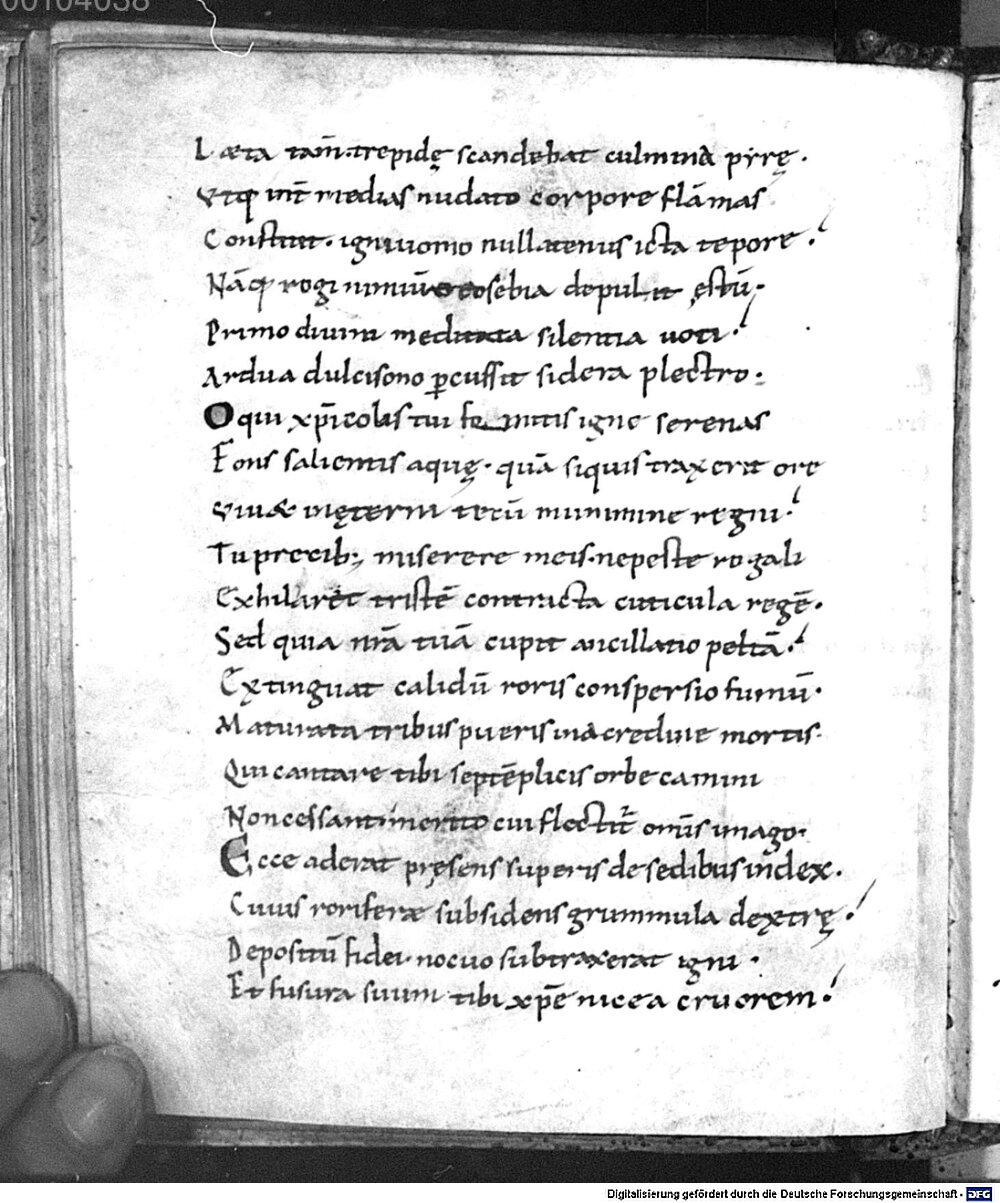 00104038
Læta tam̄ trepidę scandebat culmina pyrę·
Vtq; int̄ medias nudato corpore flāmas
Constitit· igniuomo nullatenus icta tepore·
Nāq; rogi nimiū eosebia depulit ęstū·
Primo diuini meditata silentia uoti·
Ardua dulcisono ꝑcussit sidera plectro·
O qui xp̄icolas tui mitis igne serenas
Fons salientis aquę· quā siquis traxerit ore
Viuæ inęterni tecū munimine regni·
Tu precib; miserere meis· ne peste rogali
Exhilaret tristē contracta cuticula regē·
Sed quia nr̄a tuā cupit ancillatio peltā·
Extinguat calidū roris conspersio fumū·
Maturata tribus pueris in acredine mortis·
Qui cantare tibi septēplicis orbe camini
Non cessant· merito cui flectit᷑ om̄is imago·
Ecce aderat pręsens superis de sedibus index·
Cuius roriferæ subsidens grummula dextrę·
Depositū fidei· nocuo subtraxerat igni·
Et fusura suum tibi xp̄e nicea cruorem·
Digitalisierung gefördert durch die Deutsche Forschungsgemeinschaft - DFG